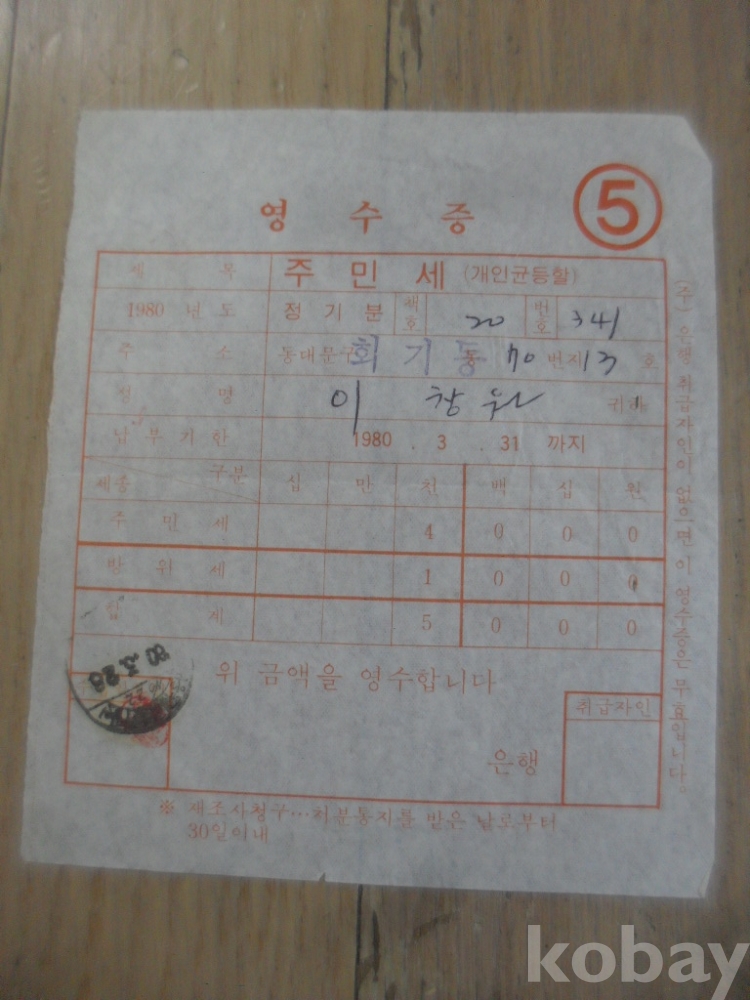 영 수 증 ⑤
세 목 주 민 세 (개인균등할)
1980 년 도 정 기 분 책호 20 번호 341
주 소 동대문구 회 기 동 70 번지 13 호
성 명 이 창 원 귀하
납 부 기 한 1980 . 3 . 31 까지
세종 구분 십 만 천 백 십 원
주 민 세 4 0 0 0
방 위 세 1 0 0 0
합 계 5 0 0 0
위 금액을 영수합니다
80.3.28
취급자인
은행
※ 재조사청구…처분통지를 받은 날로부터
30일이내
(주) 은행 취급자인이 없으면 이 영수증은 무효입니다.
kobay